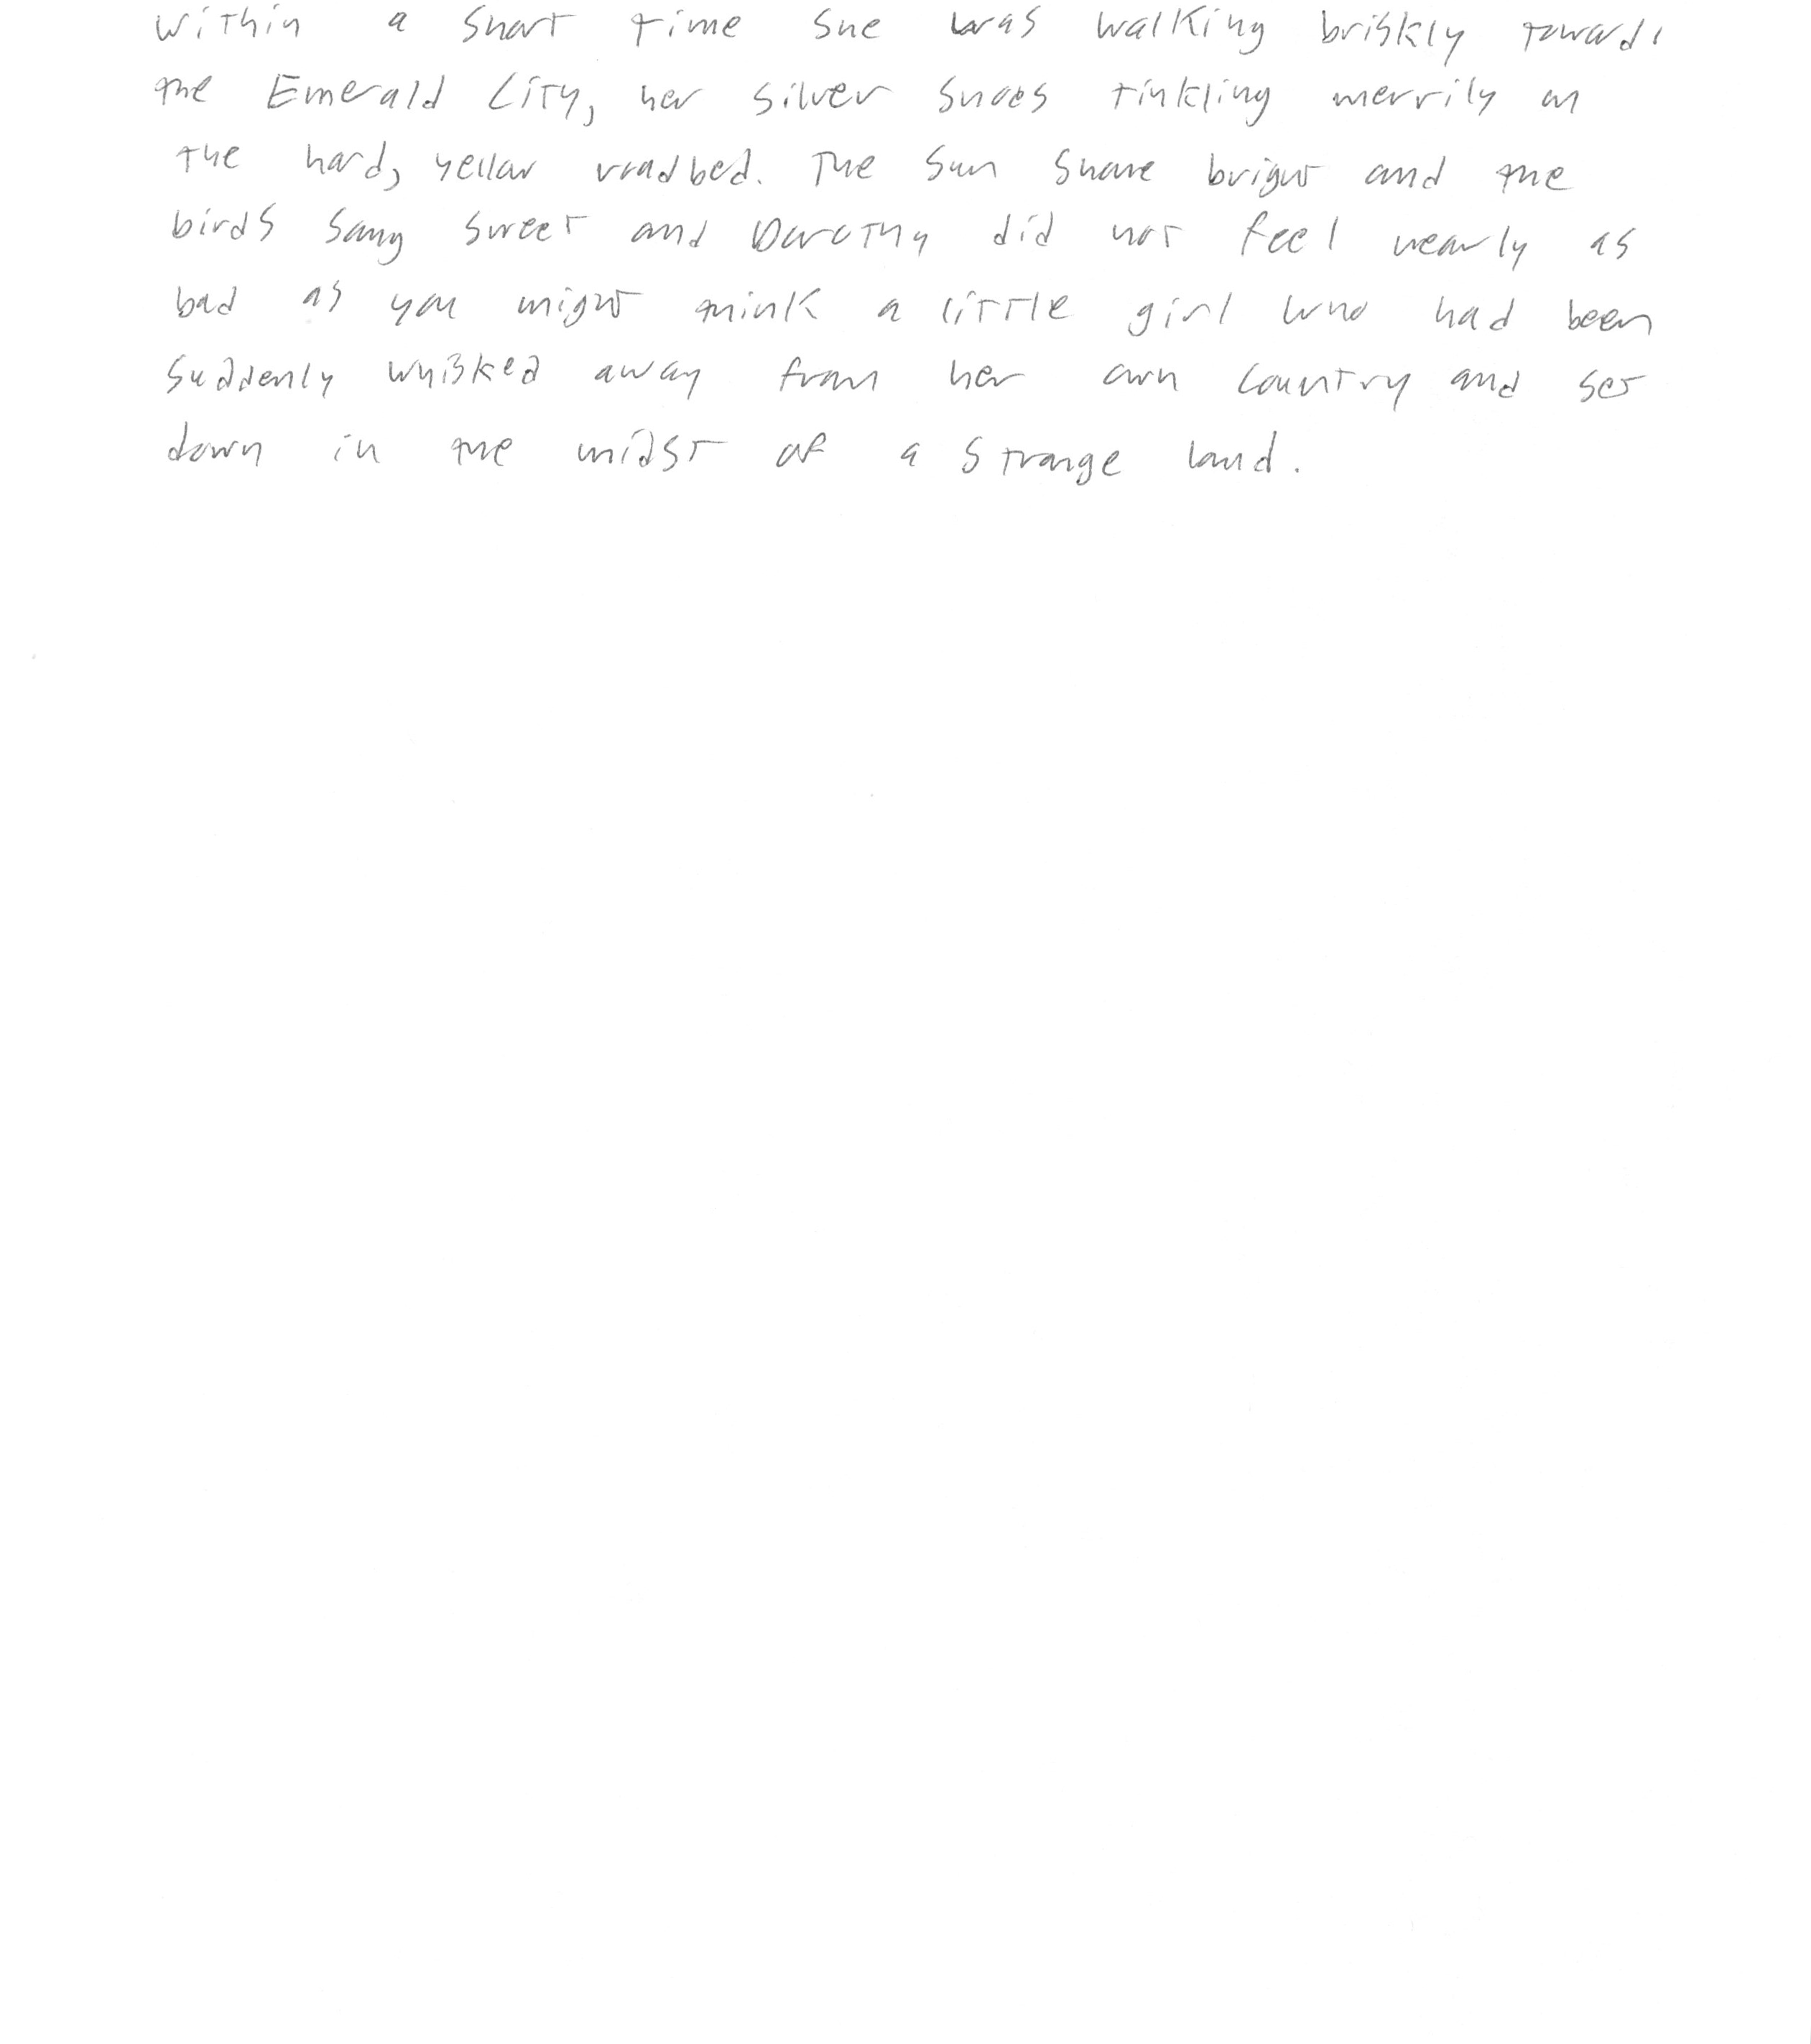 Within a short time she was walking briskly towards
the Emerald City, her silver shoes tinkling merrily on
the hard, yellow roadbed. The sun shone bright and the
birds sang sweet and Dorothy did not feel nearly as
bad as you might think a little girl who had been
suddenly whisked away from her own country and set
down in the midst of a strange land.